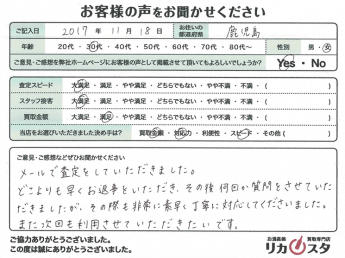 お客様の声をお聞かせください
ご記入日 2017 年 11 月 18 日 お住いの都道府県 鹿児島
年齢 20代・30代・40代・50代・60代・70代・80代〜 性別 男・女
ご意見・ご感想を弊社ホームページにお客様の声として掲載させて頂いてもよろしいでしょうか? Yes・No
査定スピード 大満足・満足・やや満足・どちらでもない・やや不満・不満・( )
スタッフ接客 大満足・満足・やや満足・どちらでもない・やや不満・不満・( )
買取金額 大満足・満足・やや満足・どちらでもない・やや不満・不満・( )
当店をお選びいただきました決め手は? 買取金額・対応力・利便性・スピード・その他( )
ご意見・ご感想などぜひお聞かせください
メールで査定をしていただきました。
どこよりも早くお返事をいただき、その後何回か質問をさせていただ
きましたが、その際も非常に素早く丁寧に対応してくださいました。
また次回も利用させていただきたいです。
ご協力ありがとうございました。
この度は誠にありがとうございました。
お酒高価買取専門店
リカスタ